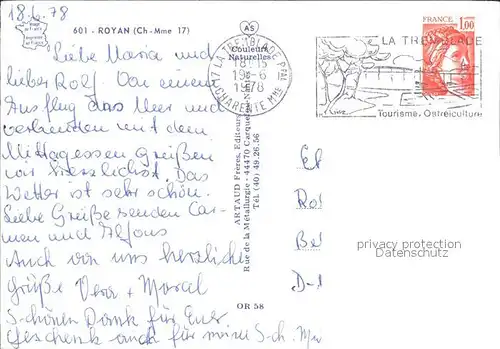 18.6.78
601 - ROYAN (Ch-Mme 17)
Liebe Maria und
lieber Rolf Von einem
Ausflug das Meer und
verbunden mit dem
Mittagessen Grüßen
wir herzlichst. Das
Wetter ist sehr schön.
Liebe Grüße senden Car-
men und Alfons
Auch von uns herzliche
Grüße Vera + Marcel
Schönen Dank für Euer
Geschenk auch für meine Sch. Mu
AS
Couleurs
Naturelles
17 LA TREMBLADE
18H15
19-6
1978
CHARENTE MME
FRANCE
1,00
LA TREMBLADE
Tourisme. Ostréiculture
ARTAUD Frères, Editeurs
Rue de la Métallurgie - 44470 Carquefou
Tél (40) 49.26.56
OR 58
Rol
D-1
privacy protection
Datenschutz